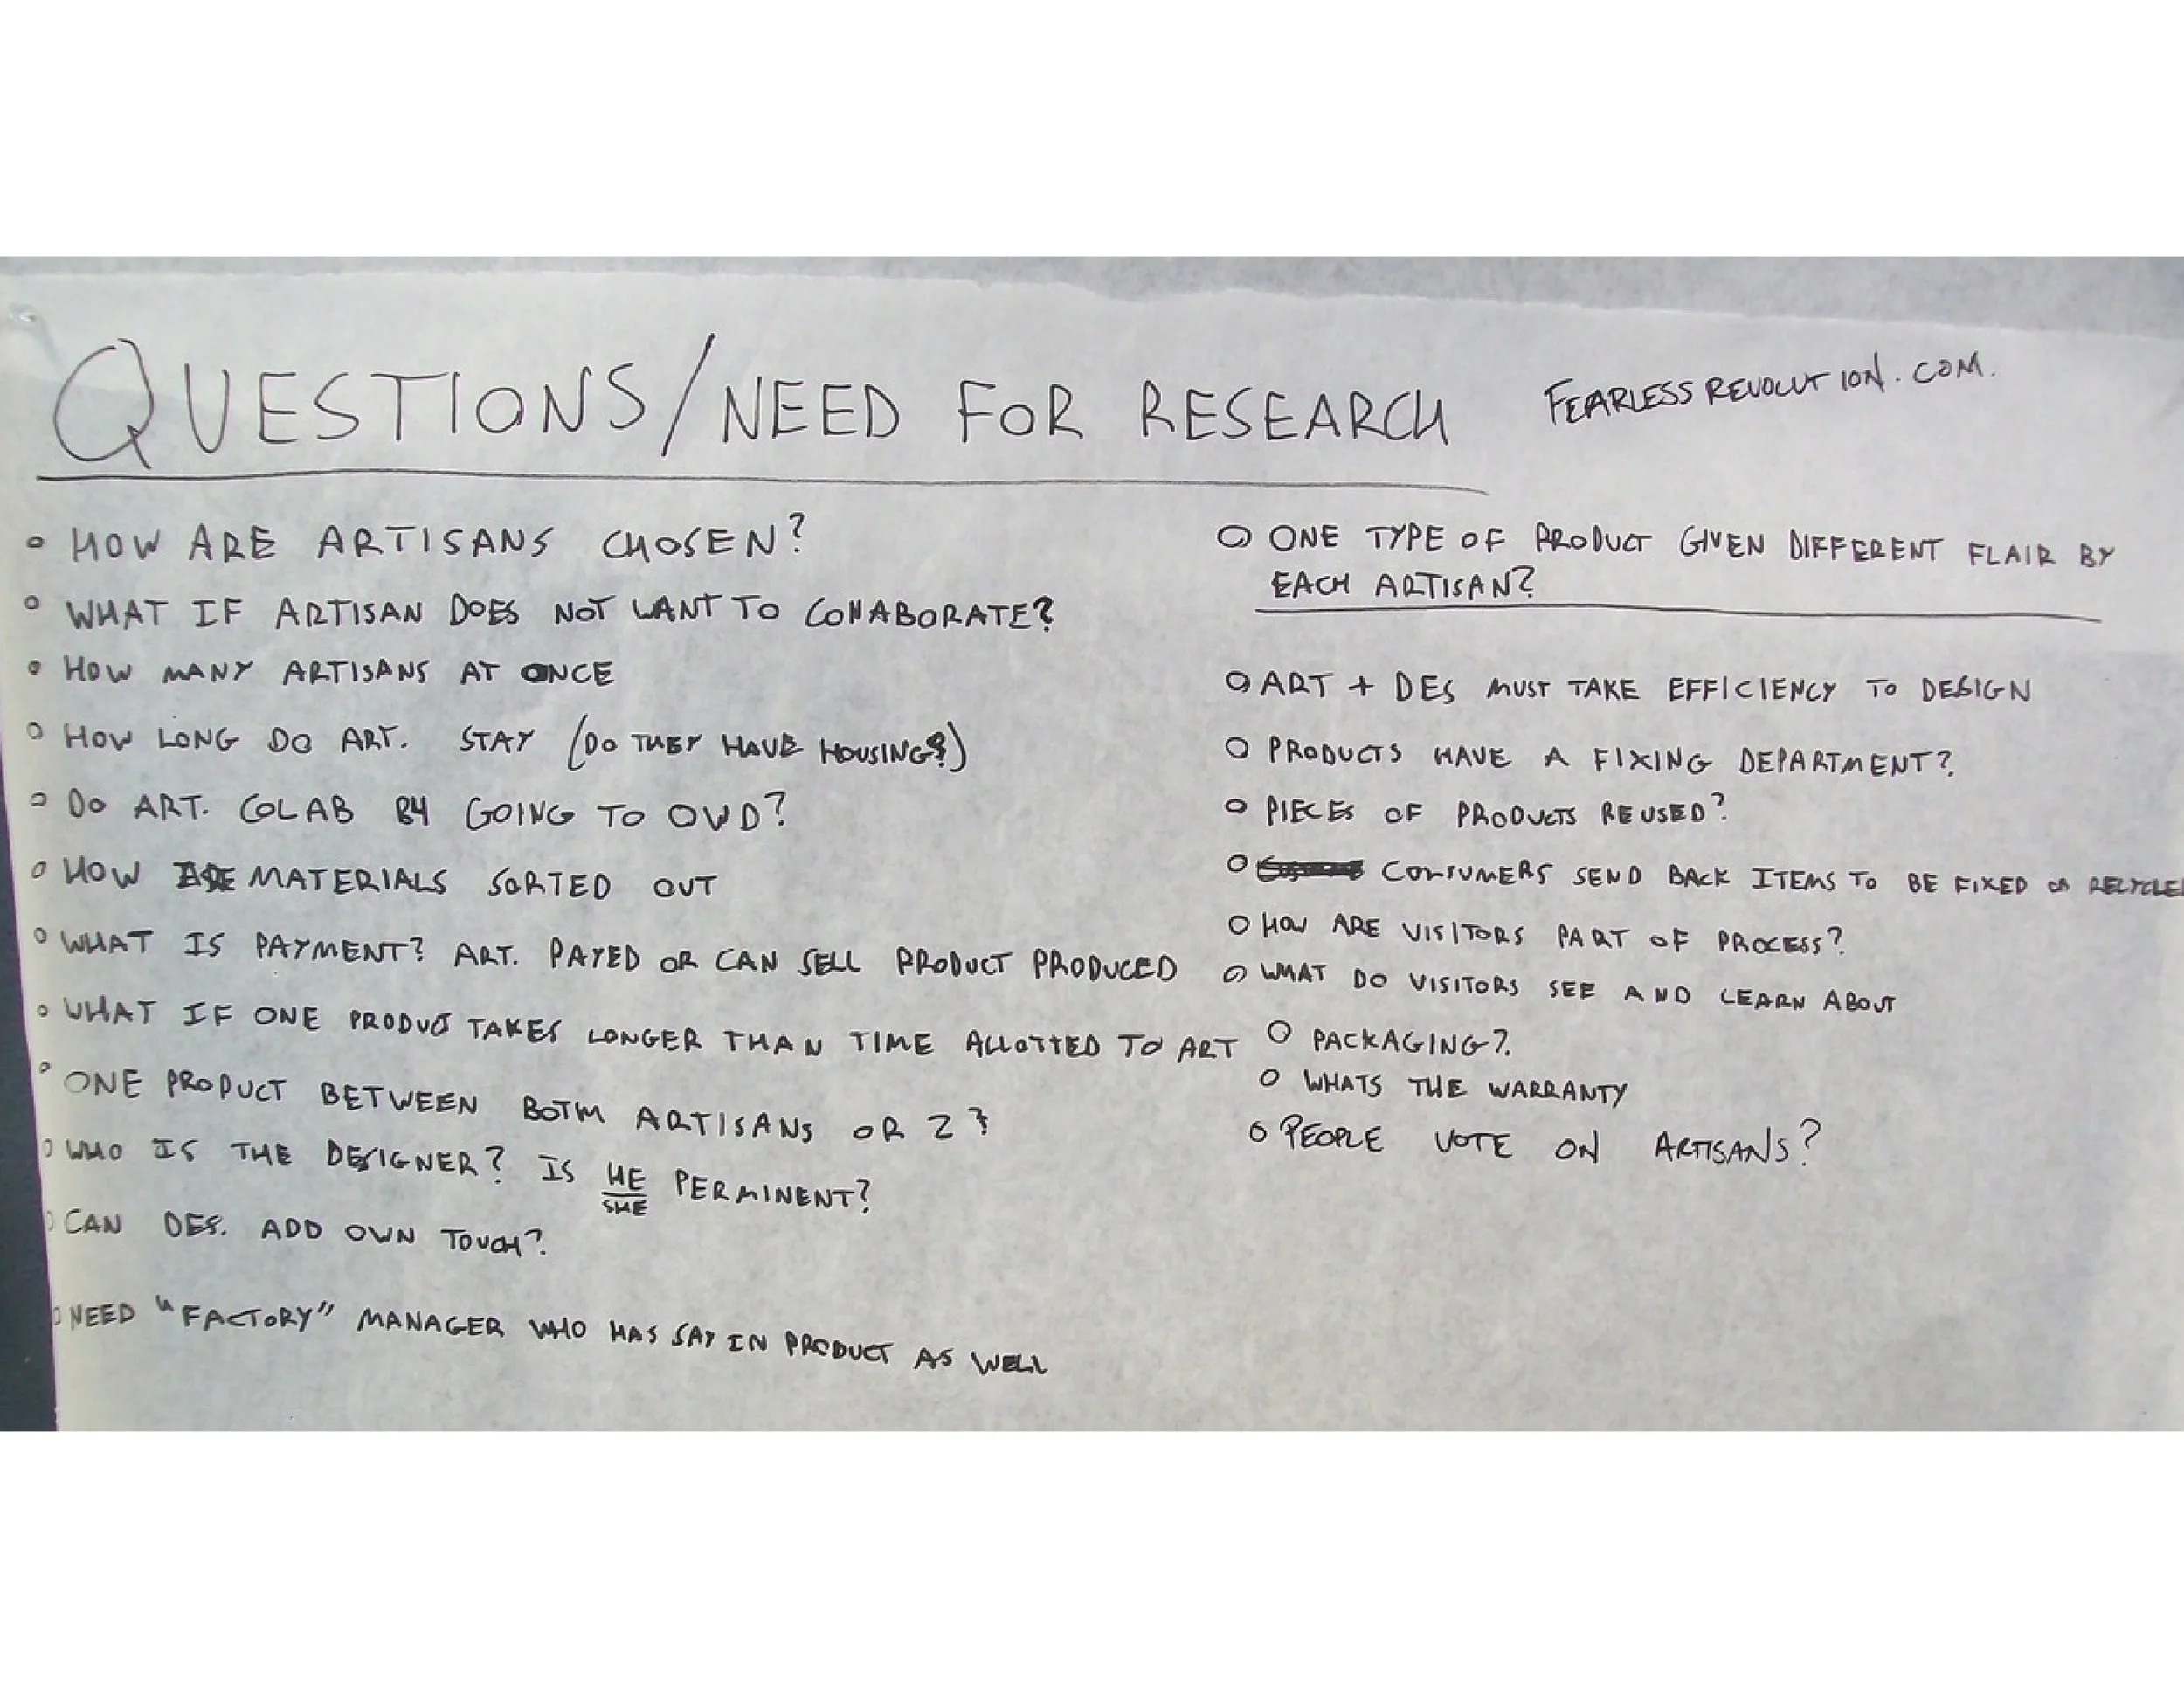 QUESTIONS/NEED FOR RESEARCH
FEARLESSREVOLUTION.COM.
HOW ARE ARTISANS CHOSEN?
WHAT IF ARTISAN DOES NOT WANT TO COLLABORATE?
HOW MANY ARTISANS AT ONCE
HOW LONG DO ART. STAY (DO THEY HAVE HOUSING?)
DO ART. COLAB BY GOING TO OWD?
HOW ARE MATERIALS SORTED OUT
WHAT IS PAYMENT? ART. PAYED OR CAN SELL PRODUCT PRODUCED
WHAT IF ONE PRODUCT TAKES LONGER THAN TIME ALLOTTED TO ART
ONE PRODUCT BETWEEN BOTH ARTISANS OR 2?
WHO IS THE DESIGNER? IS HE PERMINENT?
SHE
CAN DES. ADD OWN TOUCH?
NEED "FACTORY" MANAGER WHO HAS SAY IN PRODUCT AS WELL
ONE TYPE OF PRODUCT GIVEN DIFFERENT FLAIR BY
EACH ARTISAN?
ART + DES MUST TAKE EFFICIENCY TO DESIGN
PRODUCTS HAVE A FIXING DEPARTMENT?
PIECES OF PRODUCTS REUSED?
CONSUMERS SEND BACK ITEMS TO BE FIXED OR RECYCLE
HOW ARE VISITORS PART OF PROCESS?
WHAT DO VISITORS SEE AND LEARN ABOUT
PACKAGING?
WHATS THE WARRANTY
PEOPLE VOTE ON ARTISANS?